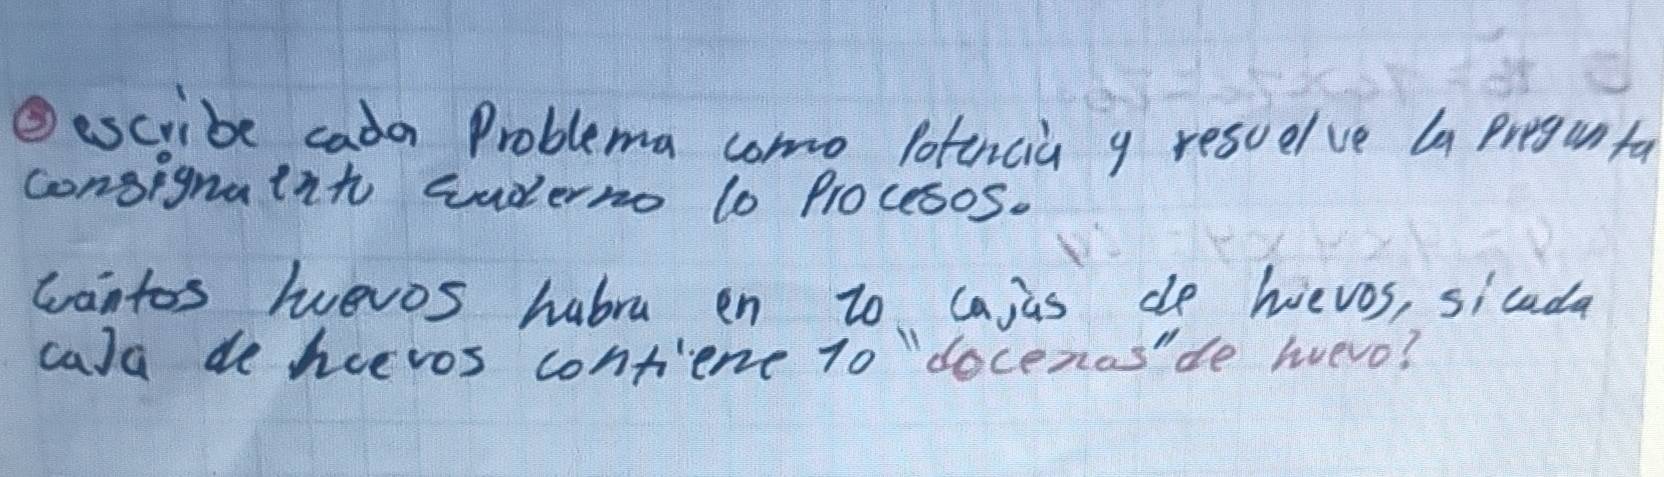 ③ escribe cada Problema como Potencia y resuelve la Pregunta
consigna en tu cuaderno lo Procesos.
Cuántos huevos habra en 10 cajas de huevos, si cada
caja de huevos contiene 10 "docenas" de huevo?